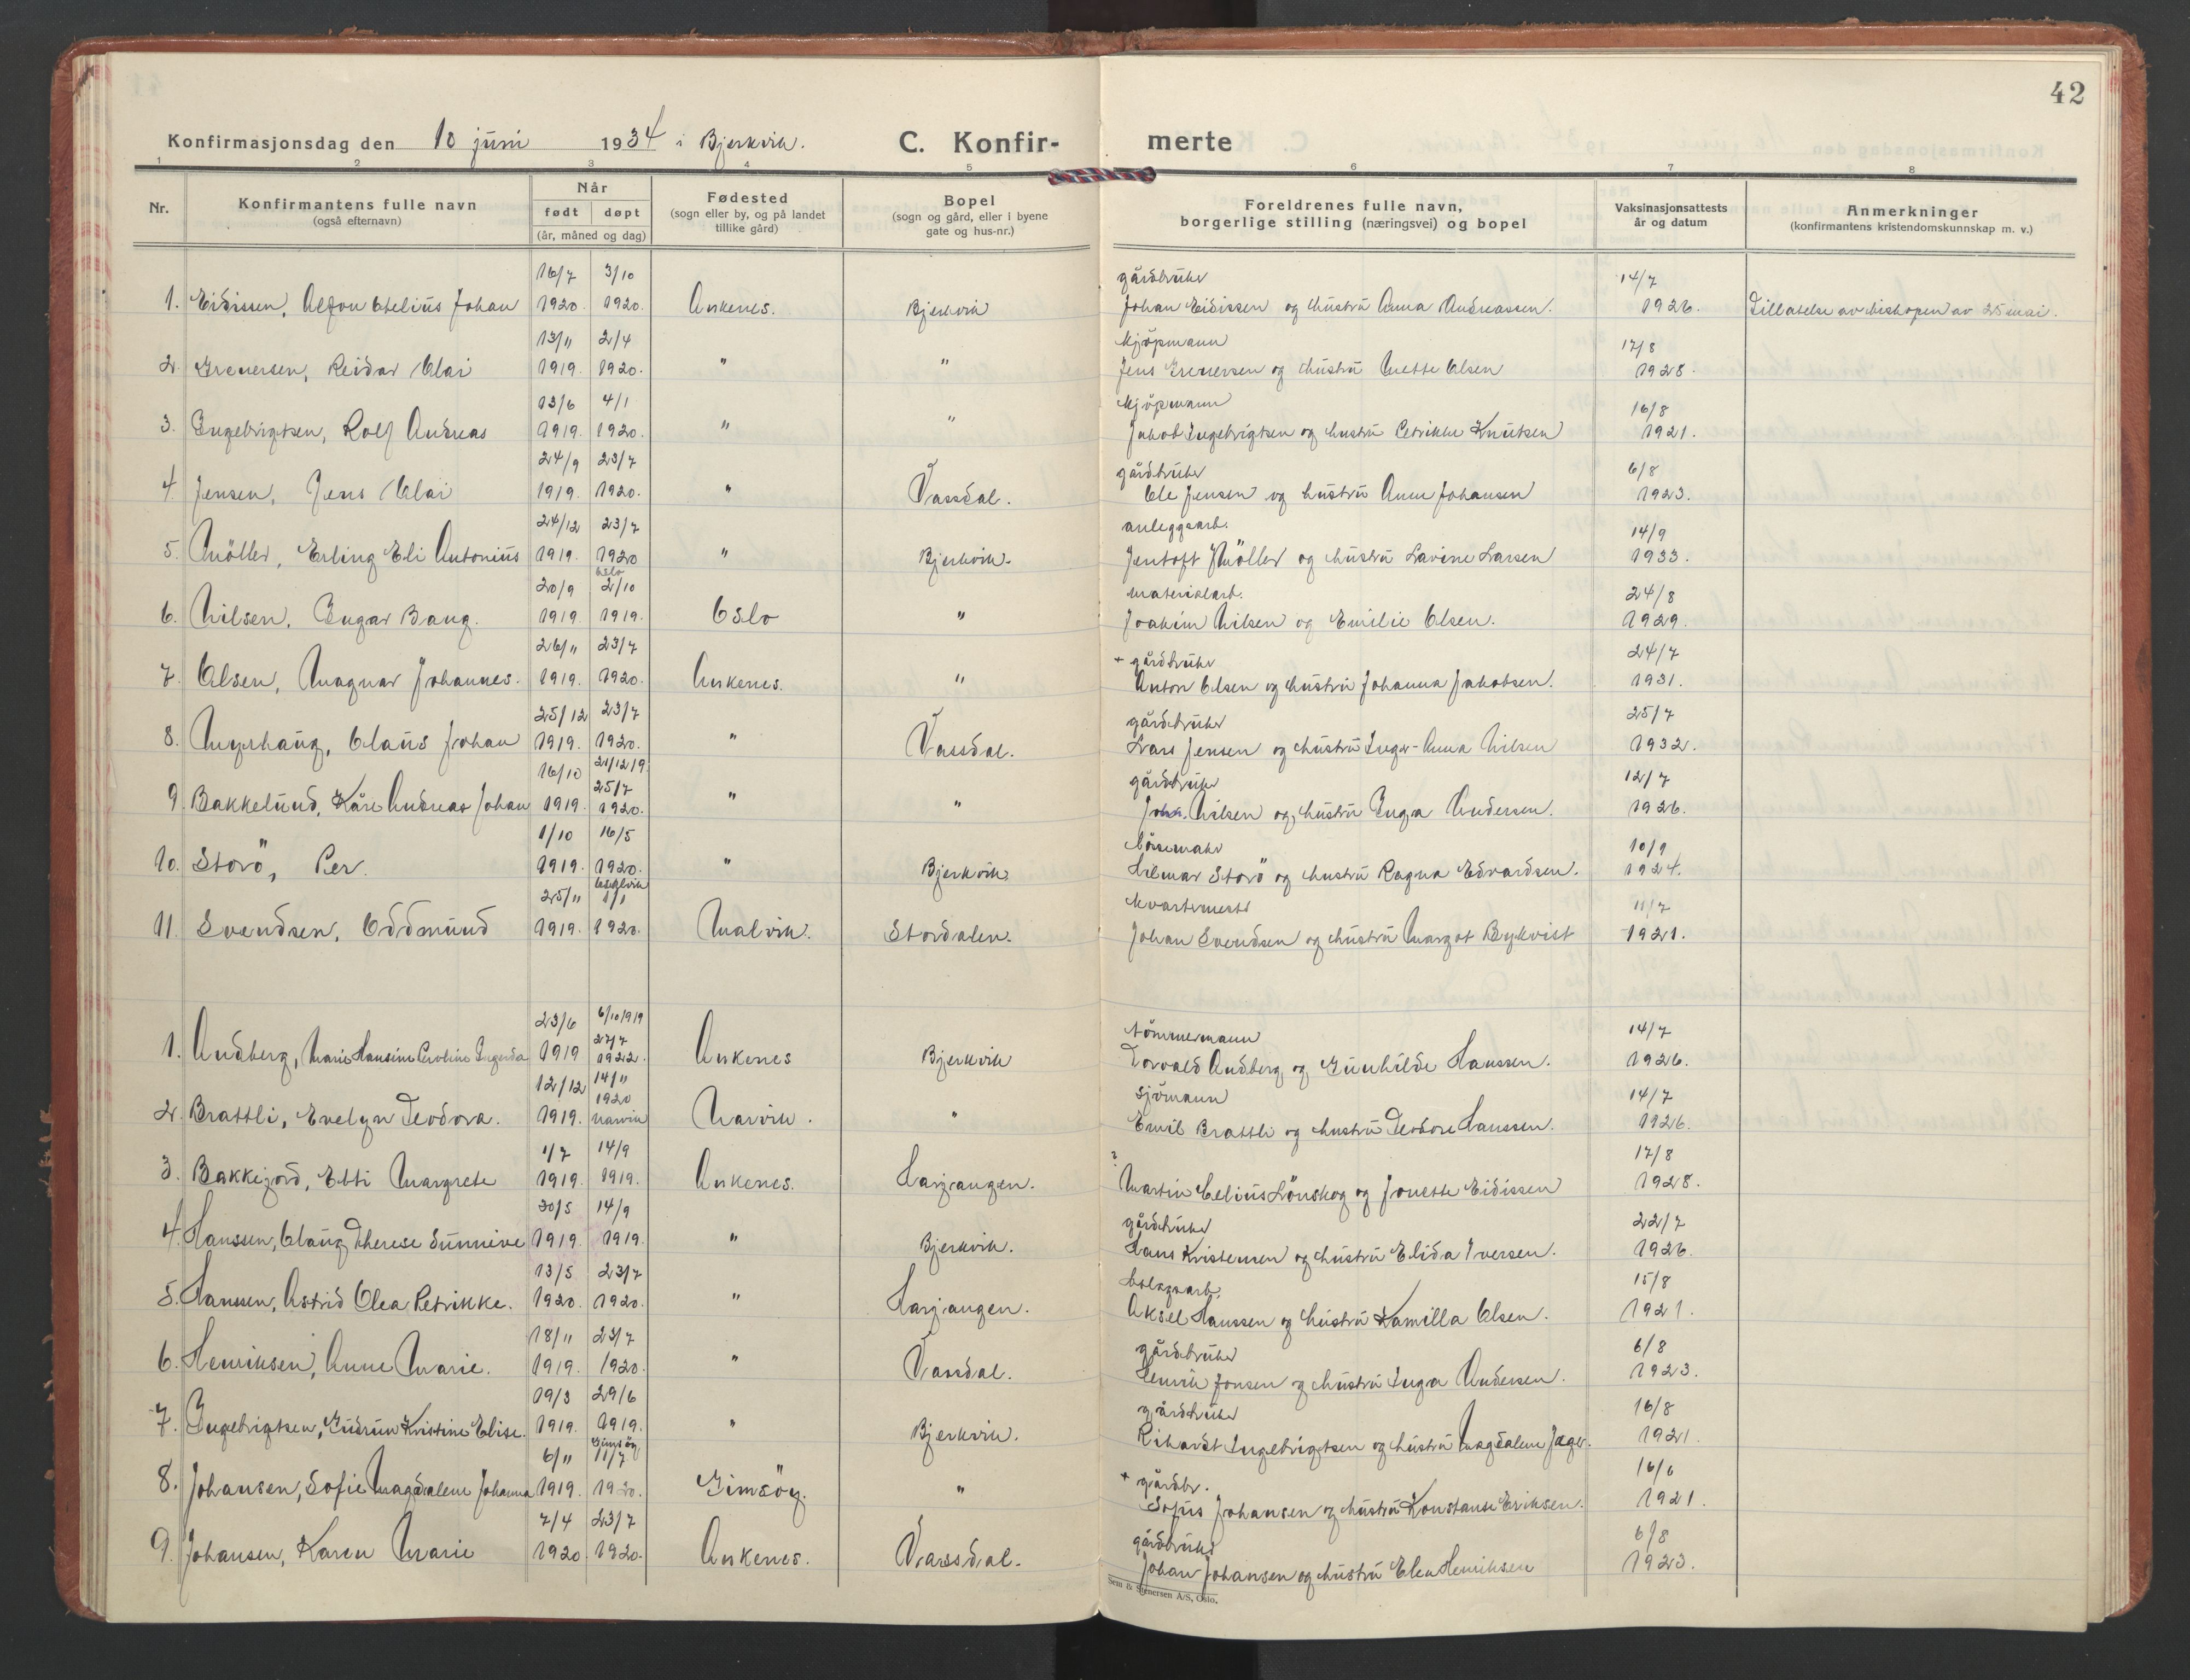 42
Konfirmasjonsdag den 10 juni 1934 i Bjerkvik. C. Konfir- merte
1 2 3 4 5 6 7 8
Nr. Konfirmantens fulle navn (også efternavn) Når født døpt (år, måned og dag) Fødested (sogn eller by, og på landet tillike gård) Bopel (sogn og gård, eller i byene gate og hus-nr.) Foreldrenes fulle navn, borgerlige stilling (næringsvei) og bopel Vaksinasjonsattests år og datum Anmerkninger (konfirmantens kristendomskunnskap m. v.)
16/7 3/10 gårdbruker 14/7
1. Eidissen, Alfon Johan 1920. 1920. Ankenes. Bjerkvik Johan Eidissen og hustru Anna Andreassen. 1926. Tillatelse av biskopen av 25 mai.
13/11 2/4 kjöpmann 17/8
2. Grenersen, Reidar Olai 1919. 1920. " " Jens Grenersen og hustru Mette Olsen 1928.
13/6 4/1 kjöpmann 16/8
3. Ingebrigtsen, Rolf Andreas 1919. 1920. " " Jakob Ingebrigtsen og hustru Petrikke Knutsen 1921.
24/9 23/7 gårdbruker 6/8
4. Jensen, Jens Olai 1919. 1920. " Vassdal. Ole Jensen og hustru Anne Johansen 1923.
24/12 23/7 anleggsarb. 14/9
5. Möller, Erling Eli Antonius 1919. 1920 " Bjerkvik. Jentoft Möller og hustru Lavine Larsen 1933.
20/9 Oslo 2/10 materialarb. 24/8
6. Nilsen, Ingar Bang. 1919. 1919. Oslo " Joakim Nilsen og Emilie Olsen. 1929.
26/11 23/7 + gårdbruker 24/7
7. Olsen, Magnar Johannes. 1919. 1920. Ankenes. " Anton Olsen og hustru Johanna Jakobsen. 1931.
25/12 23/7 gårdbruker 25/7
8. Myrhaug, Olaus Johan 1919. 1920. " Vassdal. Lars Jensen og hustru Inger-Anna Nilsen 1932.
16/10 21/12 19 25/7 gårdbruker 12/7
9. Bakkelund, Kåre Andreas Johan 1919. 1920. " " Johs. Nilsen og hustru Inga Andersen. 1926.
1/10 16/5 10/9
10. Storö, Per. 1919. 1920. " Bjerkvik. Hilmar Storö og hustru Ragna Edvardsen. 1924.
25/11 1/1 11/7
11. Svendsen, Oddmund 1919. 1920. Malvik. Stordalen. Johan Svendsen og hustru Margot Bykvist 1921.
23/6 6/10 1919 27/7 tömmermann 14/7
1. Andberg, Marie Hansine Peroline Ingerda 1919 1922. Ankenes Bjerkvik Torvald Andberg og Gunhilde Hanssen. 1926.
12/12 14/11 1920 sjömann 14/7
2. Brattli, Evelyn Teodora. 1919. Narvik Narvik. " Emil Brattli og hustru Teodore Hanssen. 1926.
1/7 14/9 ? 17/8
3. Bakkejord, Etti Margrete 1919. 1919. Ankenes. Harjangen. Martin Celius Lönskog og Jonette Eidissen 1928.
30/5 14/9 gårdbruker 22/7
4. Hanssen, Olaug Therese Sunnive 1919. 1919. " Bjerkvik. Hans Kristensen og hustru Elida Iversen. 1926.
13/5 23/7 bolagsarb. 15/8
5. Hanssen, Astrid Olea Petrikke. 1920. 1920. " Harjangen. Aksel Hanssen og hustru Kamilla Olsen. 1921.
18/11 23/7 gårdbruker 6/8
6. Henriksen, Anne Marie. 1919. 1920. " Vassdal. Henrik Jonsen og hustru Inga Andersen. 1923.
19/3 29/6 gårdbruker 16/8
7. Ingebrigtsen, Gudrun Kristine Elise. 1919. 1919. " Bjerkvik. Rikardt Ingebrigtsen og hustru Magdalene Jæger. 1921.
6/11 Gimsöy 11/7 + gårdbr. 16/6
8. Johansen, Sofie Magdalene Johanna 1919. 1920. Gimsöy. " Sofus Johansen og hustru Konstanse Eriksen. 1921.
7/4 23/7 gårdbruker 6/8
9. Johansen, Karen Marie 1920. 1920. Ankenes. Vassdal. Johan Johansen og hustru Elen Henriksen 1923.
Sem & Stenersen A/S, Oslo.